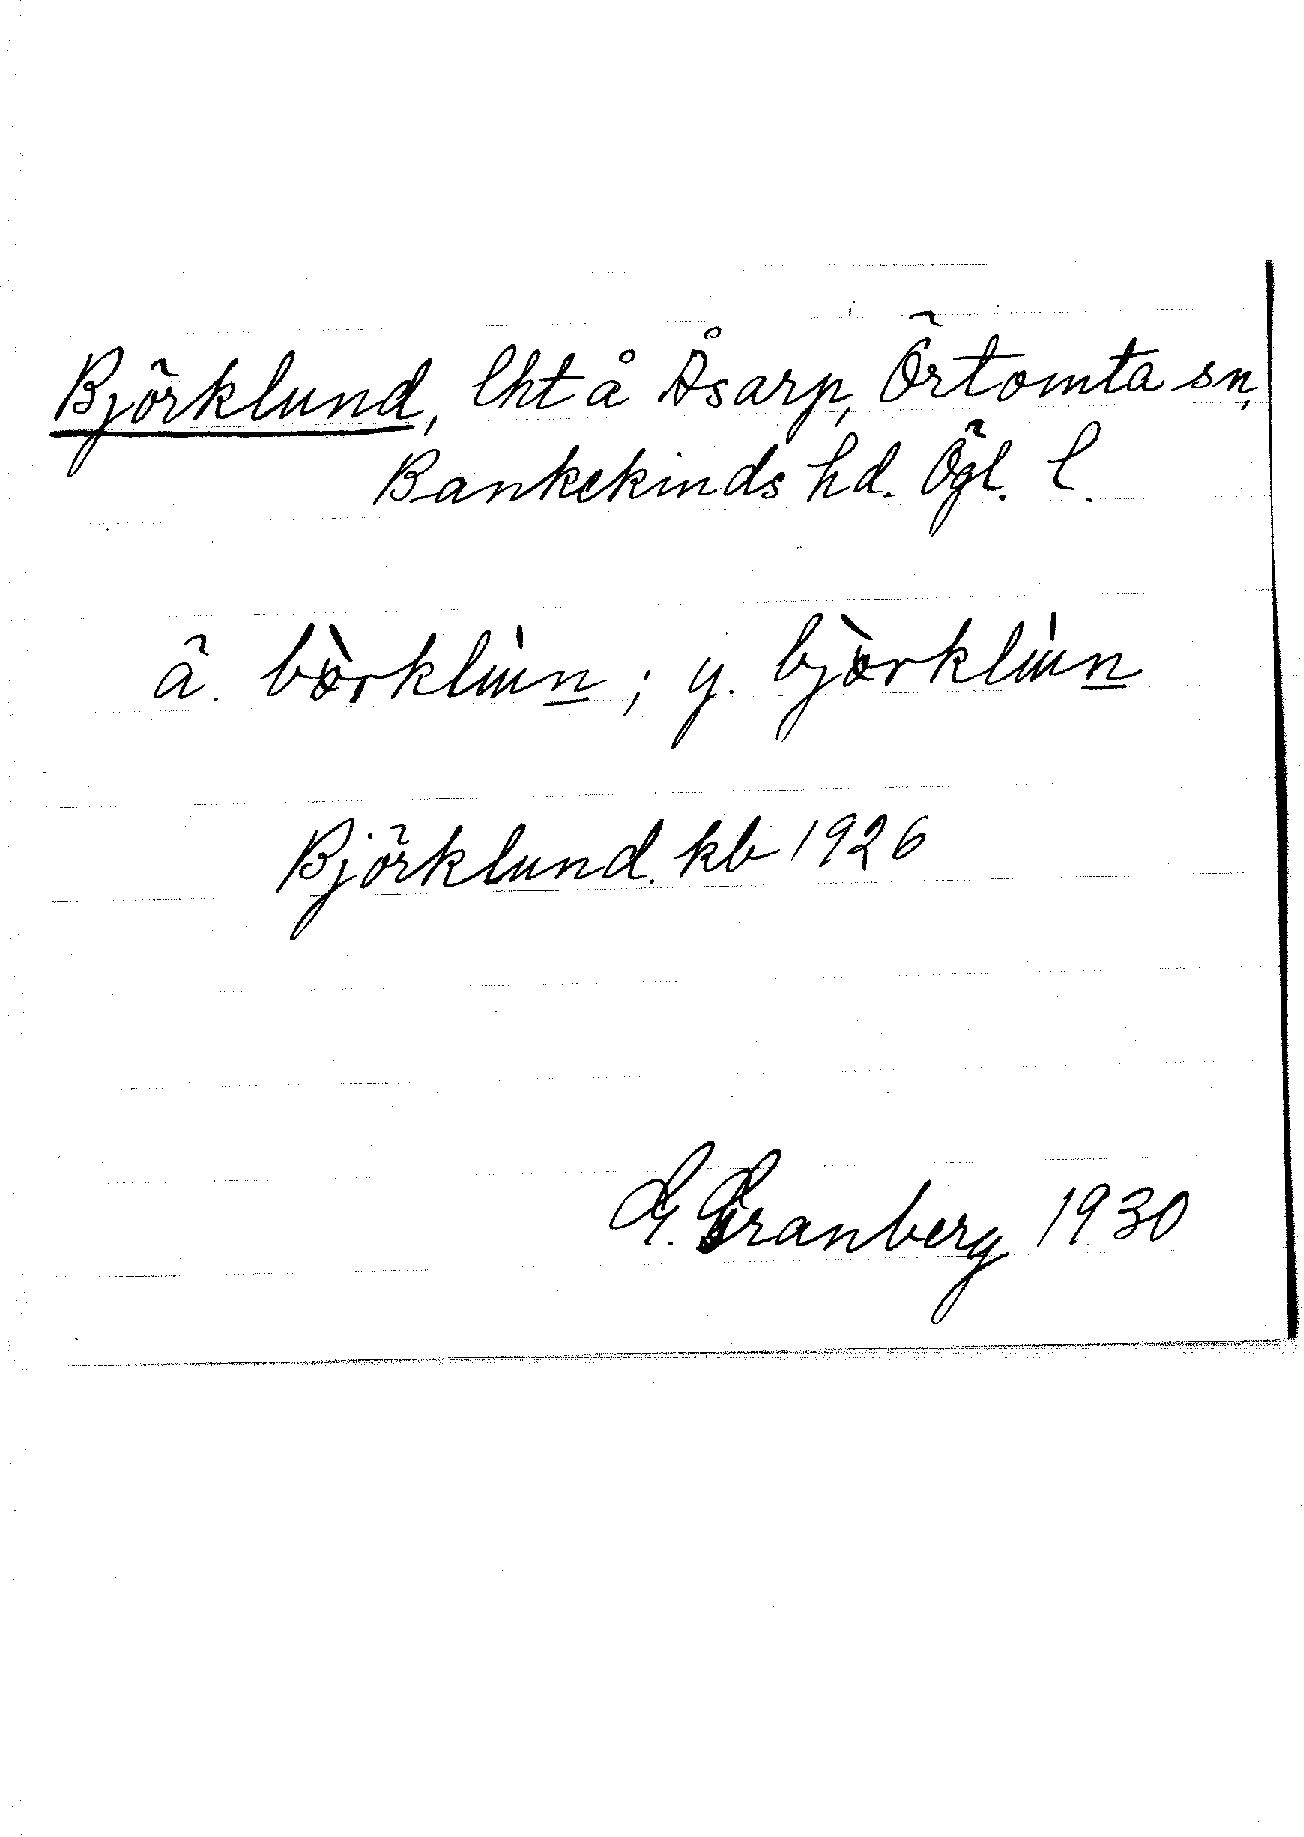 Björklund, lht å Åsarp, Örtomta sn,
Bankekinds hd. Ögl. l.
ä. bòrklùn; y. bjòrklùn
Björklund. kb 1926
G. Granberg 1930